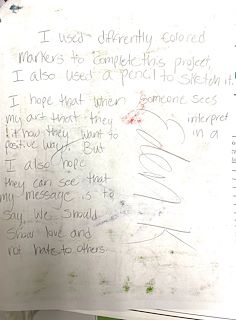 I used diffrently colored
markers to complete this project,
I also used a pencil to sketch it.
I hope that when someone sees
my art that they interpret
it how they want to in a
positive way. But
I also hope
they can see that
my message is to
say we should
show love and
not hate to others.
Eden K